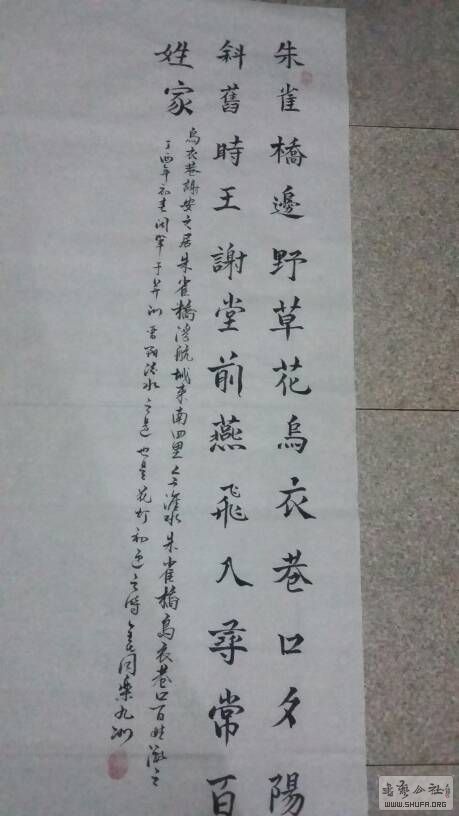 朱雀橋邊野草花烏衣巷口夕陽
斜舊時王謝堂前燕飛入尋常百
姓家
烏衣巷謝安之居朱雀橋 航城東南四里 淮水朱雀橋烏衣巷口百姓 之
丁酉年初春 于 洲 也是花灯初 之時 同樂九洲
書藝公社
WWW.SHUFA.ORG